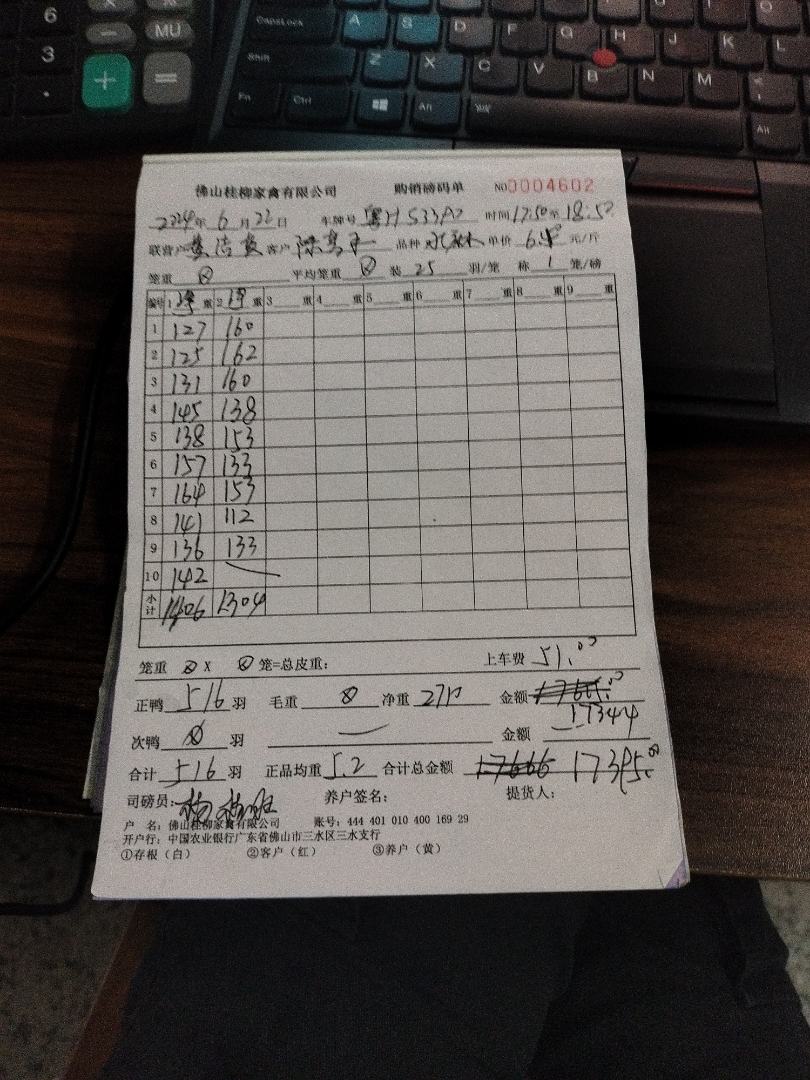 6 × ×
3 − MU
. + =
CapsLock A S D F G H J K L
Shift Z X C V B N M
Fn Ctrl Alt Alt
佛山桂柳家禽有限公司 购销磅码单 NO 0004602
2024年 6 月 22 日 车牌号 粤H S33A2 时间 17:50 至 18:50
联营户 客户 品种 单价 元/斤
笼重 0 平均笼重 0 装 25 羽/笼 称 1 笼/磅
编号 1 净 重 2 净 重 3 重 4 重 5 重 6 重 7 重 8 重 9 重
1 127 160
2 125 162
3 131 160
4 145 138
5 138 153
6 157 133
7 164 153
8 141 112
9 136 133
10 142
小计 1406 1304
笼重 0 X 0 笼=总皮重: 上车费 51.00
正鸭 516 羽 毛重 0 净重 2710 金额
17344
次鸭 0 羽 金额
合计 516 羽 正品均重 5.2 合计总金额 17666 17395.00
司磅员: 养户签名: 提货人:
户 名: 佛山桂柳家禽有限公司 账号: 444 401 010 400 169 29
开户行: 中国农业银行广东省佛山市三水区三水支行
①存根(白) ②客户(红) ③养户(黄)